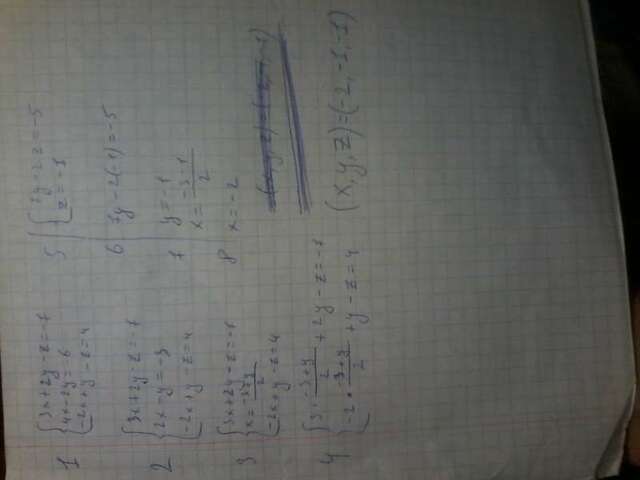 1 3x+2y-z=-7
4x-2y=-6
-2x+y-z=4
2 3x+2y-z=-7
2x-y=-3
-2x+y-z=4
3 3x+2y-z=-7
x=\frac{-3+y}{2}
-2x+y-z=4
4 3·\frac{-3+y}{2}+2y-z=-7
-2·\frac{-3+y}{2}+y-z=4
5 7y-2z=-5
z=-1
6 7y-2(-1)=-5
7 y=-1
x=\frac{-3-1}{2}
8 x=-2
(x,y,z)=(-2,-1,-1)